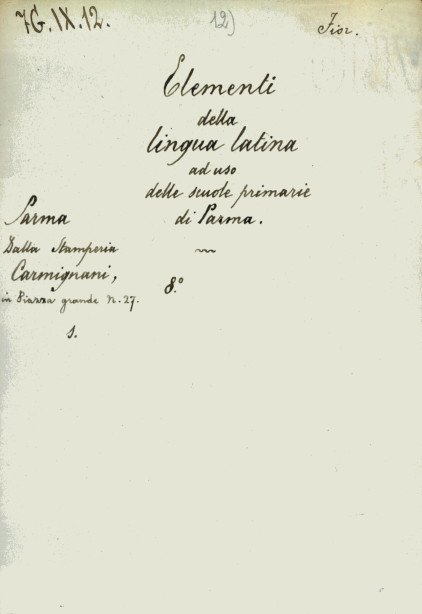 7G.IX.12.
12)
Fior.
Elementi
della
lingua latina
ad uso
delle scuole primarie
di Parma.
Parma
Dalla Stamperia
Carmignani,
in Piazza grande N. 27.
8.º
s.